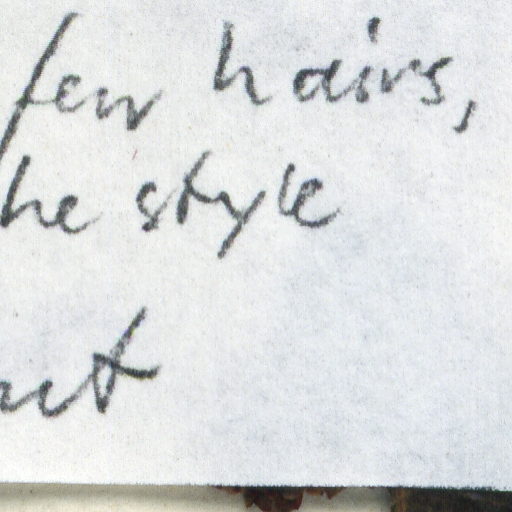 few hairs,
he style